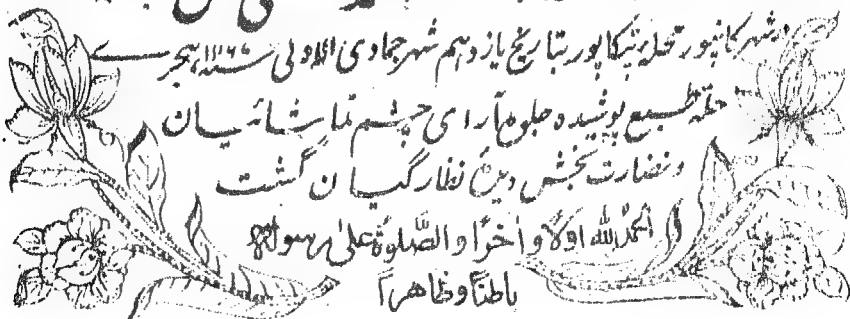 در شهر کانپور محله پٹکاپور بتاریخ یازدهم شهر جمادی الاولی سنه ۱۲۶۷ هجری
حله طبع پوشیده جلوه آرای چشم تماشائیان
و نضارت بخش دیدۀ نظارگیان گشت
الحمد لله اولاً و اخراً و الصلوة علی رسوله
باطناً و ظاهراً